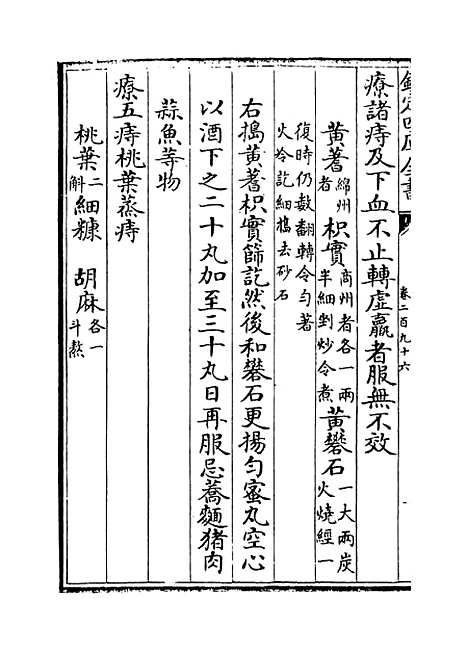 欽定四庫全書
卷二百九十六
療諸痔及下血不止轉虛羸者服無不效
黄蓍綿州者枳實商州者各一兩半細剉炒令煮黄礬石一大兩炭火燒經一
復時仍數翻轉令勻著火冷訖細擣去砂石
右搗黄蓍枳實篩訖然後和礬石更揚勻蜜丸空心
以酒下之二十丸加至三十丸日再服忌蕎麵猪肉
蒜魚等物
療五痔桃葉蒸痔
桃葉二斛細糠 胡麻各一斗熬